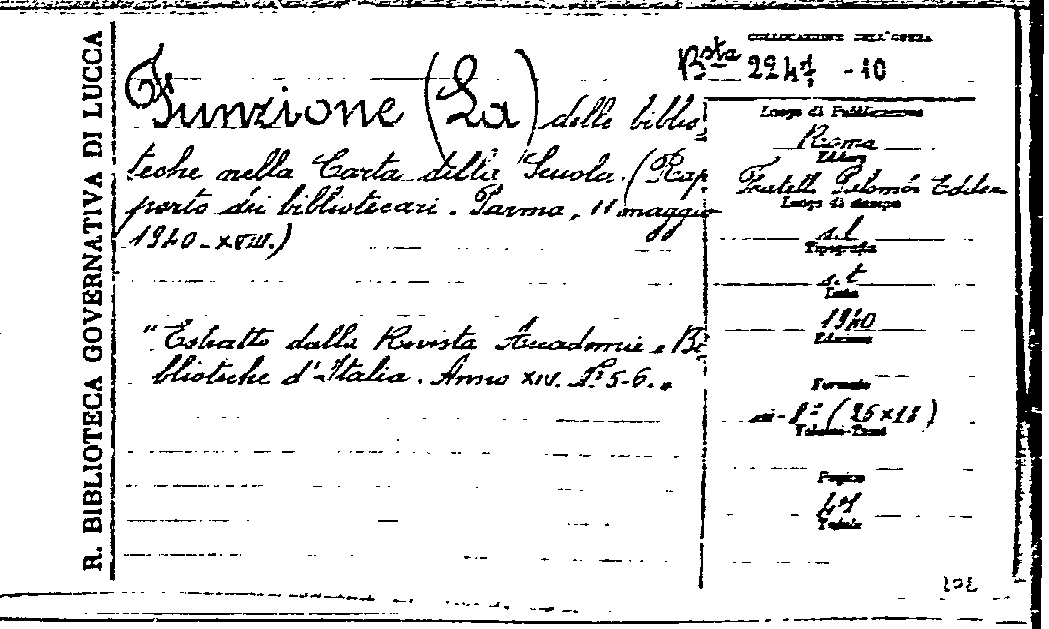 R. BIBLIOTECA GOVERNATIVA DI LUCCA
COLLOCAZIONE DELL'OPERA
Bsta
Funzione (La) delle biblio-
teche nella Carta della Scuola. (Rap-
porto dei bibliotecari. Parma, 11 maggio
1940-XVIII.)
"Estratto dalla Rivista Accademie e Bi-
blioteche d'Italia. Anno XIV. N° 5-6."
Luogo di Pubblicazione
Roma
Editore
Fratelli Palombi
Luogo di stampa
s.l
Tipografia
s.t
Data
1940
Edizione
Formato
in-8° (26x18)
Volumi-Tomi
Pagine
Tavole